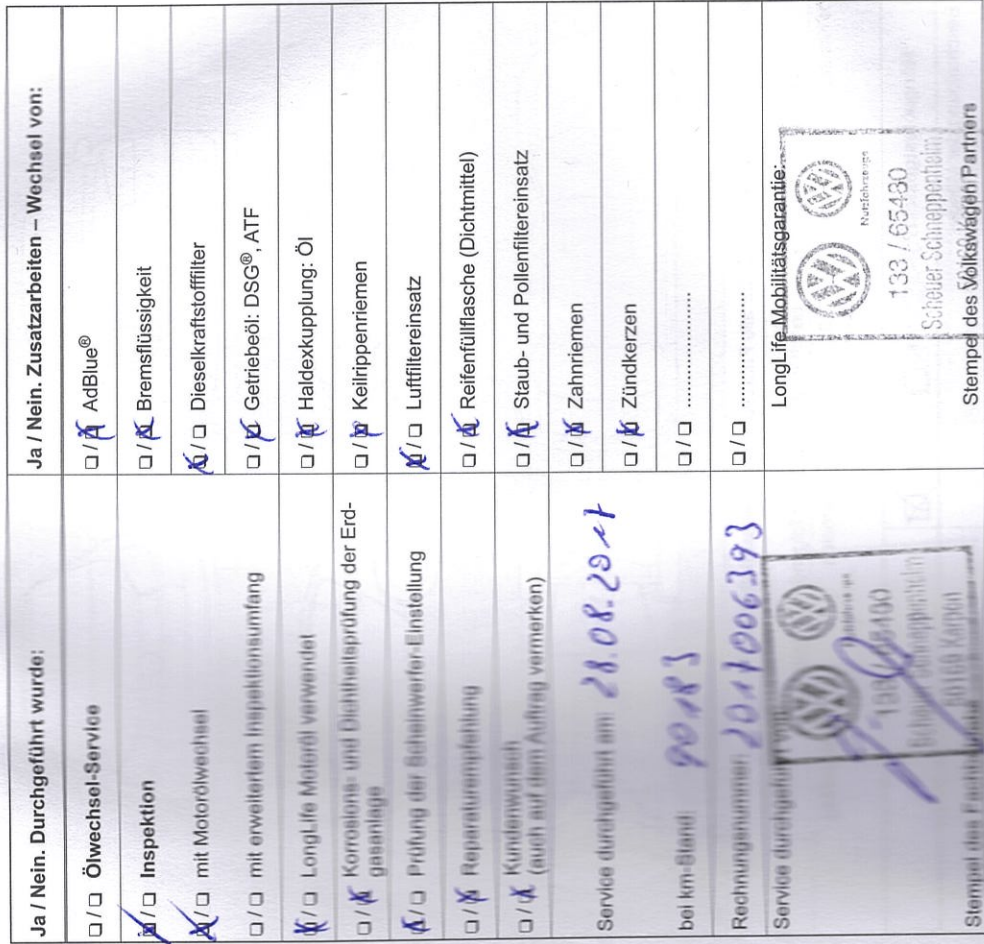 Ja / Nein. Durchgeführt wurde:
☐ / ☐ Ölwechsel-Service
☒ / ☐ Inspektion
☒ / ☐ mit Motorölwechsel
☐ / ☐ mit erweitertem Inspektionsumfang
☒ / ☐ LongLife Motoröl verwendet
☐ / ☒ Korrosions- und Dichtheitsprüfung der Erd-
gasanlage
☒ / ☐ Prüfung der Scheinwerfer-Einstellung
☐ / ☒ Reparaturempfehlung
☐ / ☒ Kundenwunsch
(auch auf dem Auftrag vermerken)
Service durchgeführt am 28.08.2017
bei km-Stand 90183
Rechnungsnummer
Service durchgeführt
Stempel des
Ja / Nein. Zusatzarbeiten – Wechsel von:
☐ / ☒ AdBlue®
☐ / ☒ Bremsflüssigkeit
☒ / ☐ Dieselkraftstofffilter
☐ / ☒ Getriebeöl: DSG®, ATF
☐ / ☒ Haldexkupplung: Öl
☐ / ☒ Keilrippenriemen
☒ / ☐ Luftfiltereinsatz
☐ / ☒ Reifenfüllflasche (Dichtmittel)
☐ / ☒ Staub- und Pollenfiltereinsatz
☐ / ☒ Zahnriemen
☐ / ☒ Zündkerzen
☐ / ☐ ....................
☐ / ☐ ....................
LongLife Mobilitätsgarantie:
Nutzfahrzeuge
133 / 65430
Scheuer Schneppenheim
Stempel des Volkswagen Partners